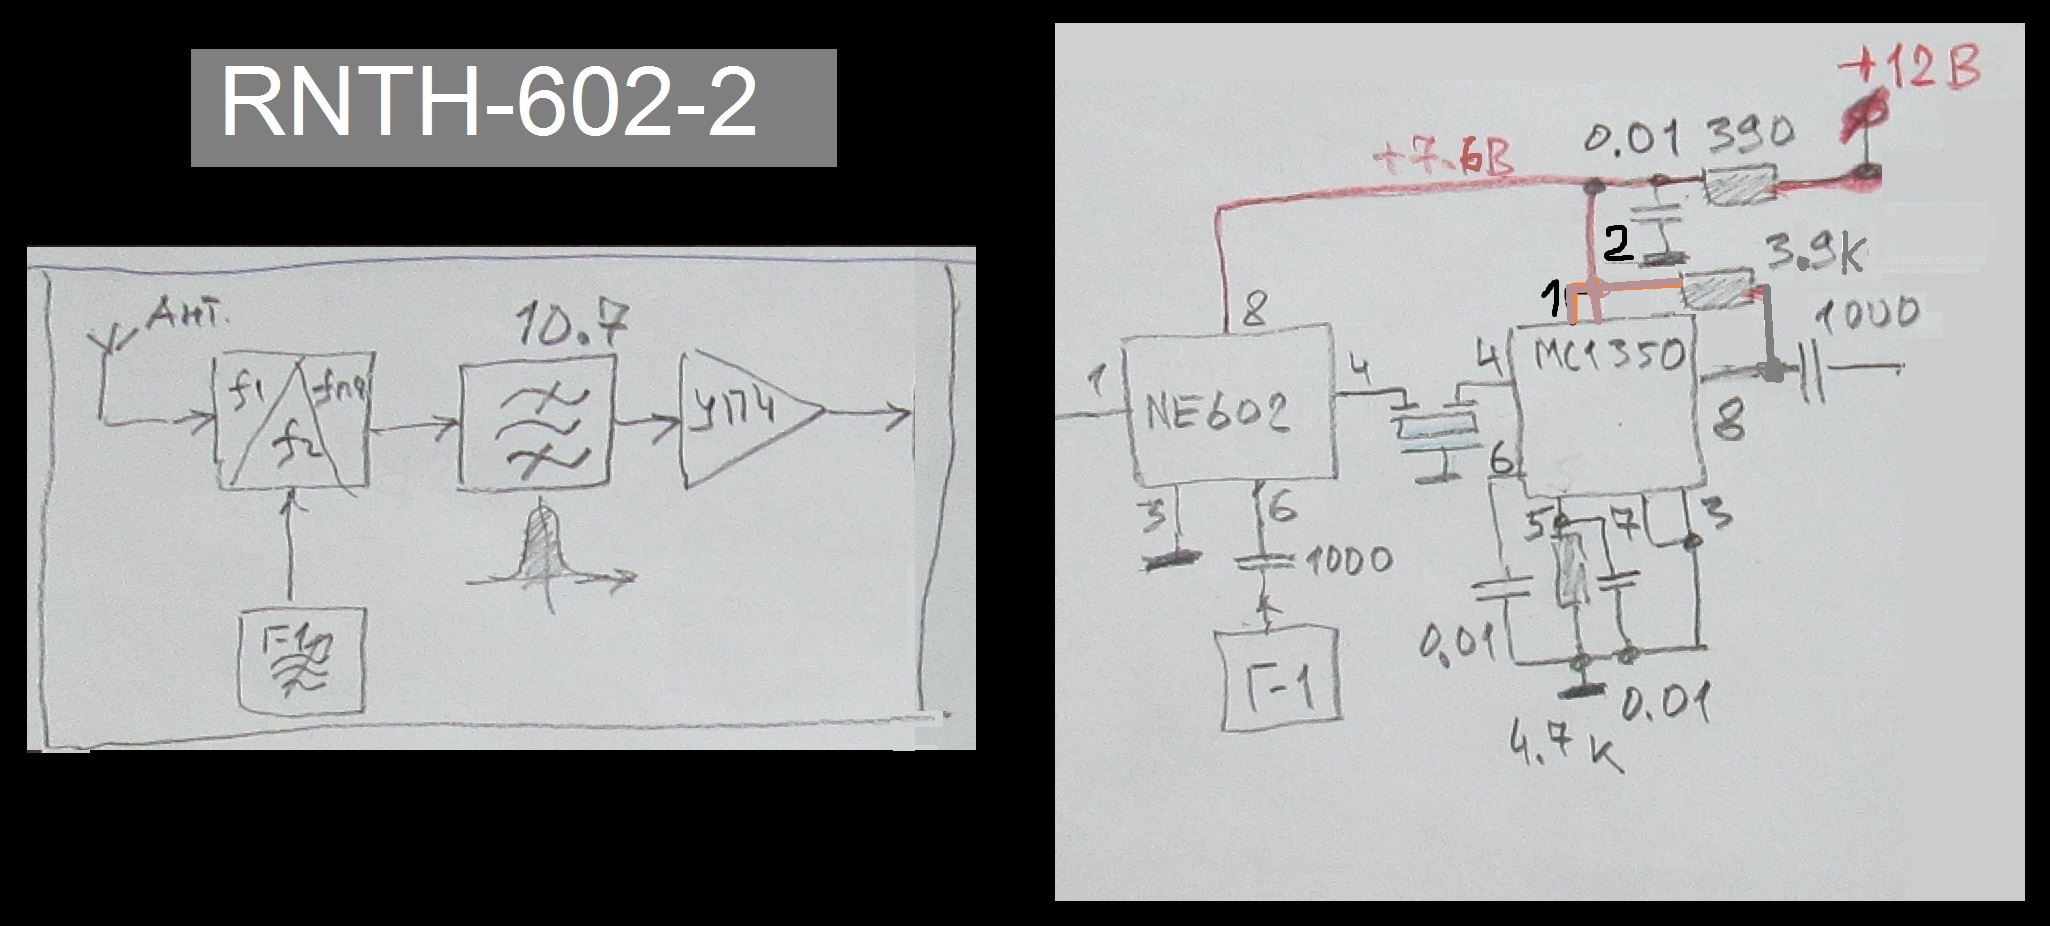 RNTH-602-2
Ант.
10.7
f1
fпч
f2
УПЧ
Г-1
+12В
0.01 390
+7.6В
2
3.9К
1
1000
8
1
NE602
4
4
MC1350
8
3
6
6
5
7
3
1000
0.01
Г-1
0.01
4.7К